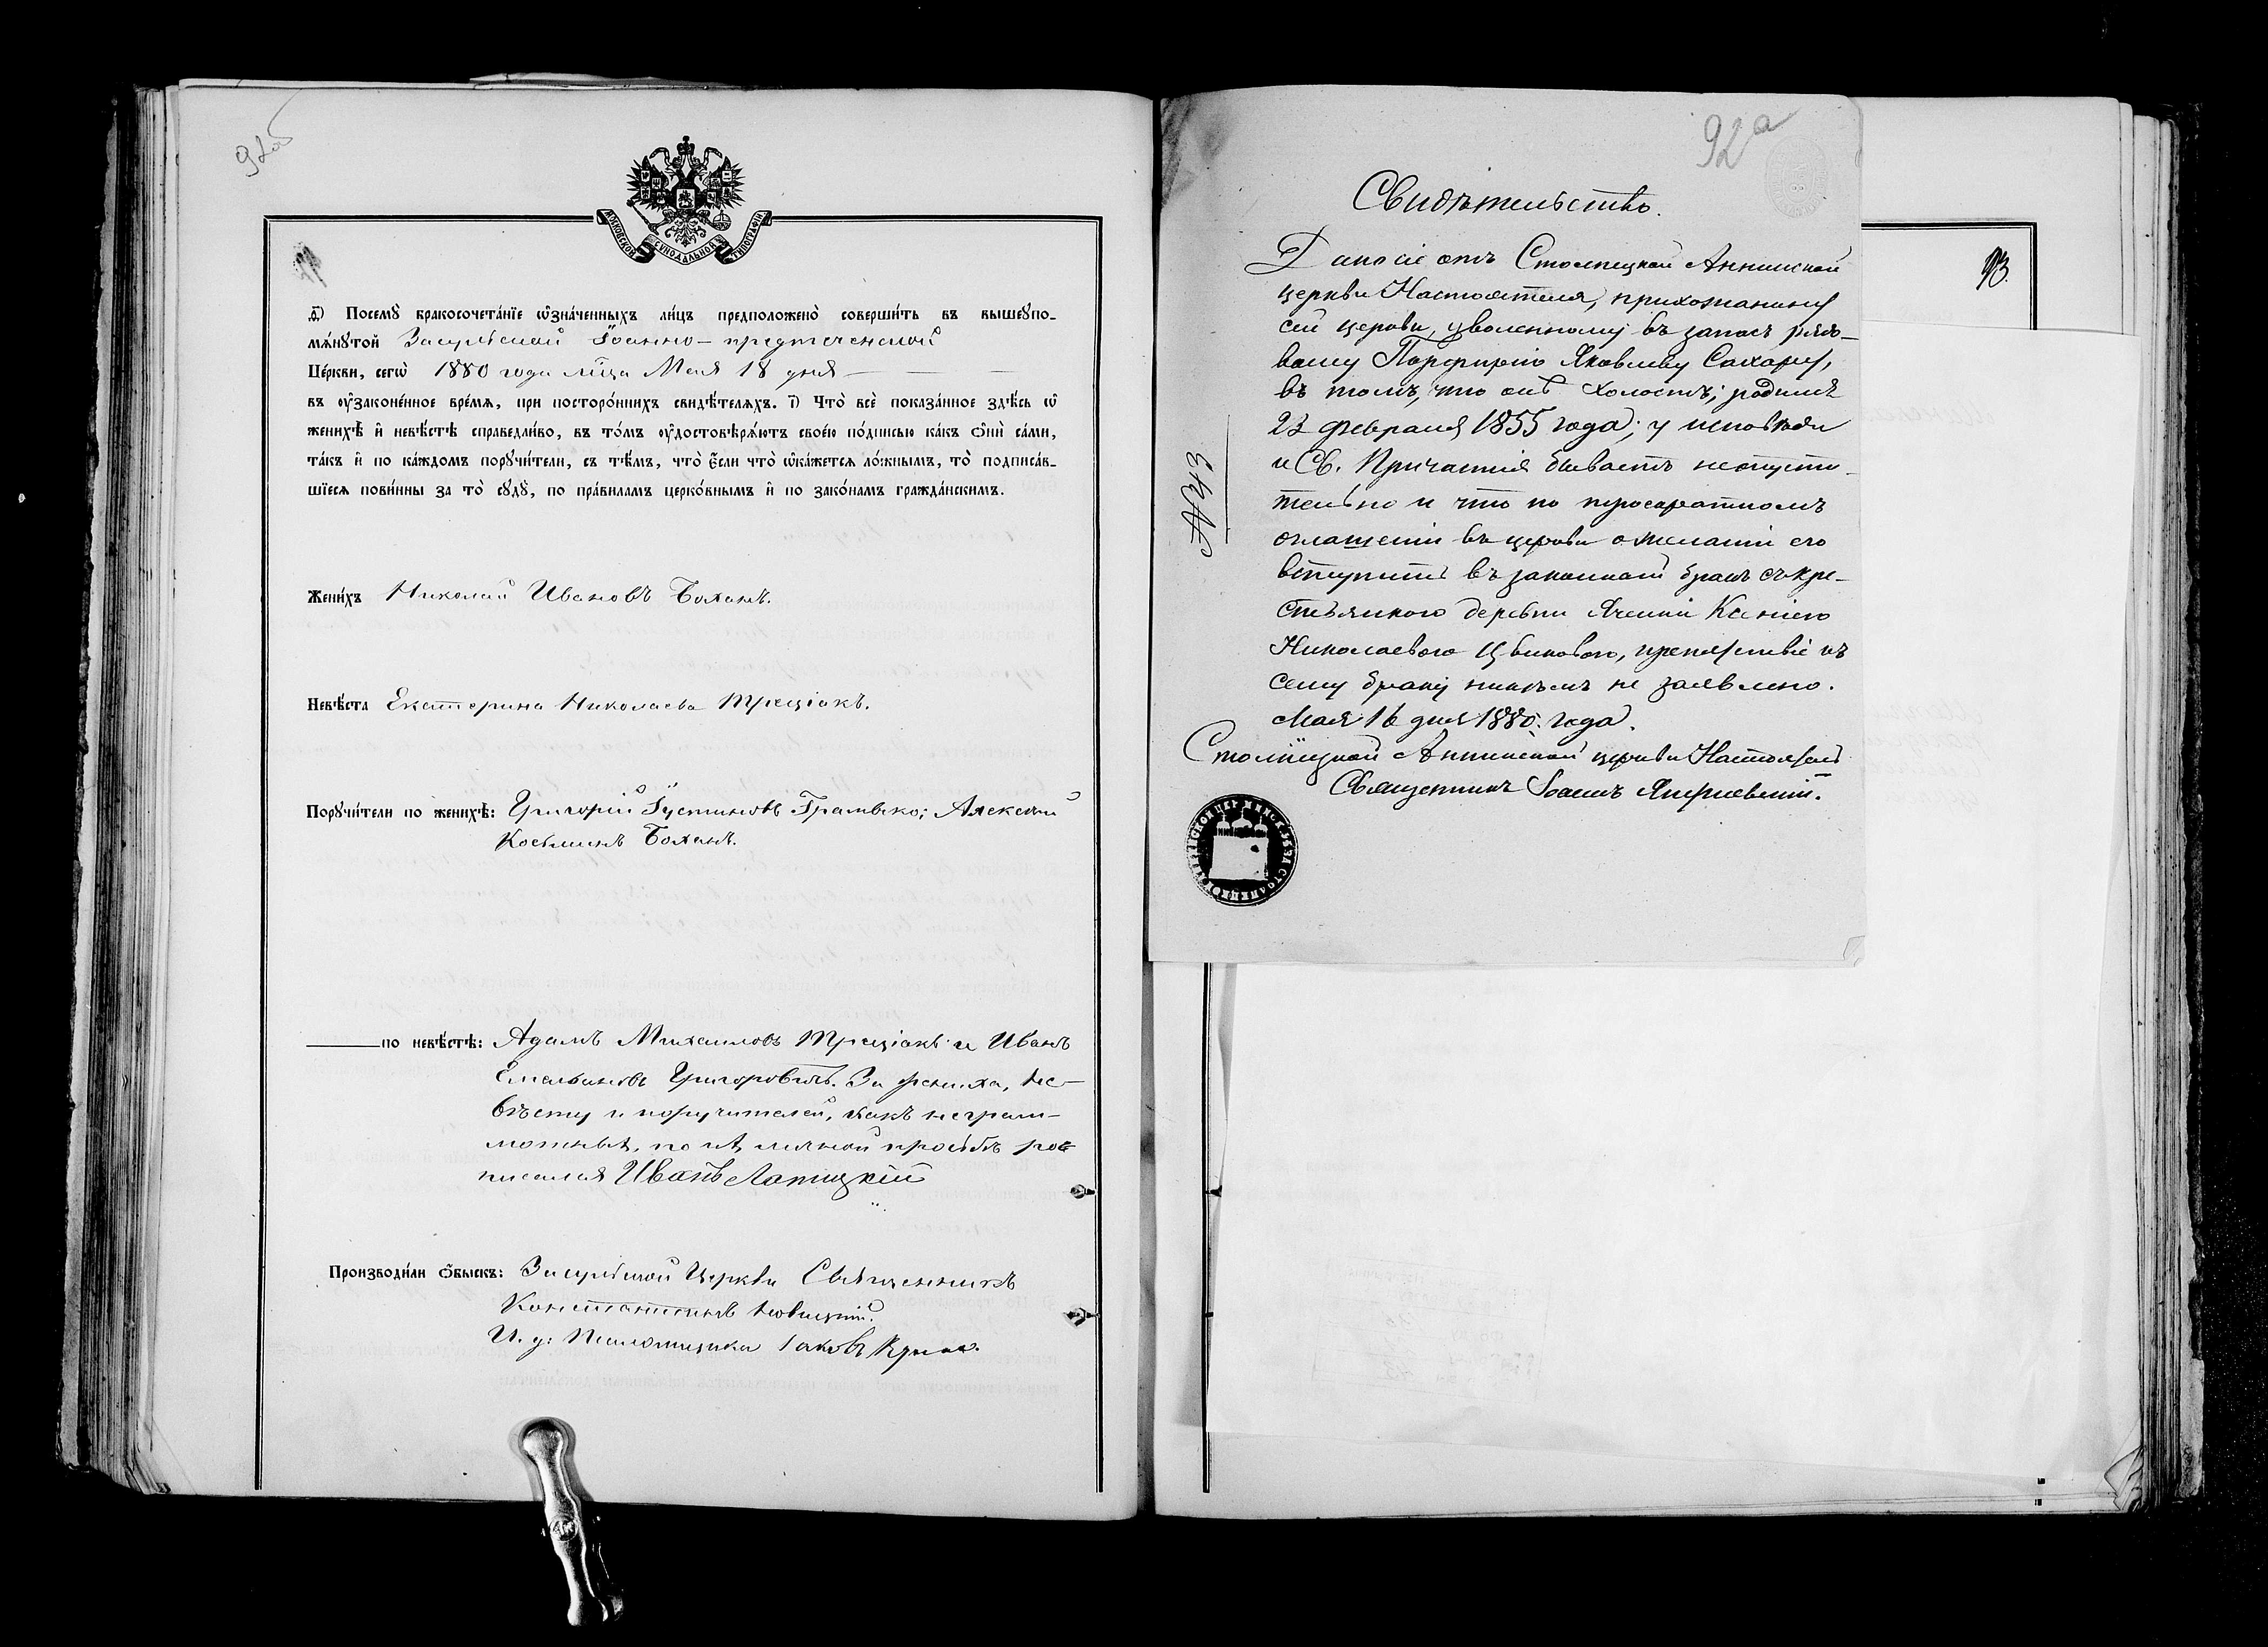 92об
МОСКОВСКОЙ СѴНОДАЛЬНОЙ ТИПОГРАФІИ
д҃) Посемꙋ̀ бракосочета́нїе ѡ҆зна́ченныхъ ли́цъ предположено̀ соверши́ть въ вышеꙋпо-
мѧ́нꙋтой Засульской Іоанно-предтеченской
Це́ркви, сегѡ̀ 1880 года м̃ца Мая 18 дня
въ ᲂу҆зако́ненное вре́мѧ, при посторо́ннихъ свидѣ́телѧхъ. і҃) Что̀ всѐ пока́занное здѣ́сь ѡ҆
женихѣ̀ и҆ невѣ́стѣ справедли́во, въ то́мъ ᲂу҆достовѣрѧ́ютъ свое́ю по́дписью ка́къ ѻ҆нѝ са́ми,
та́къ и҆ по ка́ждомъ порꙋчи́тели, съ тѣ́мъ, что̀ є҆́сли что̀ ѡ҆ка́жетсѧ ло́жнымъ, то̀ подписа́в-
шїесѧ пови́нны за то̀ сꙋдꙋ̀, по пра́виламъ церко́внымъ и҆ по зако́намъ гражда́нскимъ.
Жени́хъ Николай Ивановъ Боханъ.
Невѣ́ста Екатерина Николаева Трецiакъ.
Порꙋчи́тели по женихѣ̀: Григорій Іустиновъ Грамыко; Алексѣй
Косьминъ Боханъ.
по невѣ́стѣ: Адамъ Михаиловъ Трецiакъ и Иванъ
Емельяновъ Григоровичъ. За жениха, не-
вѣсту и поручителей, какъ неграм-
мотныхъ, по их личной просьбѣ рос
писался Иванъ Лапицкій
Производи́ли ѻ҆́быскъ: Засульской Церкви Священникъ
Константинъ Новицкій.
И. д: Псаломщика Іаковъ
92а
Свидѣтельство.
Дано сіе отъ Столпецкой Аннинской
церкви Настоятеля, прихожанину
сей церкви, уволенному въ запасъ рядо-
вому Порфирію Яковлеву Сахару,
въ томъ, что онъ холостъ; родился
23 февраля 1855 года; у исповѣди
и Св. Причастія бываетъ неопусти-
тельно и что по троекратномъ
оглашеніи въ церкви о желаніи его
вступить въ законный бракъ съ кре-
стьянкою деревни Ячении Ксеніею
Николаевою Цвиковою, препятствіе къ
сему браку никѣмъ не заявлено.
Мая 16 дня 1880 года.
Столпецкой Аннинской церкви Настоятель
Священникъ Іоаннъ
№ 43
93.